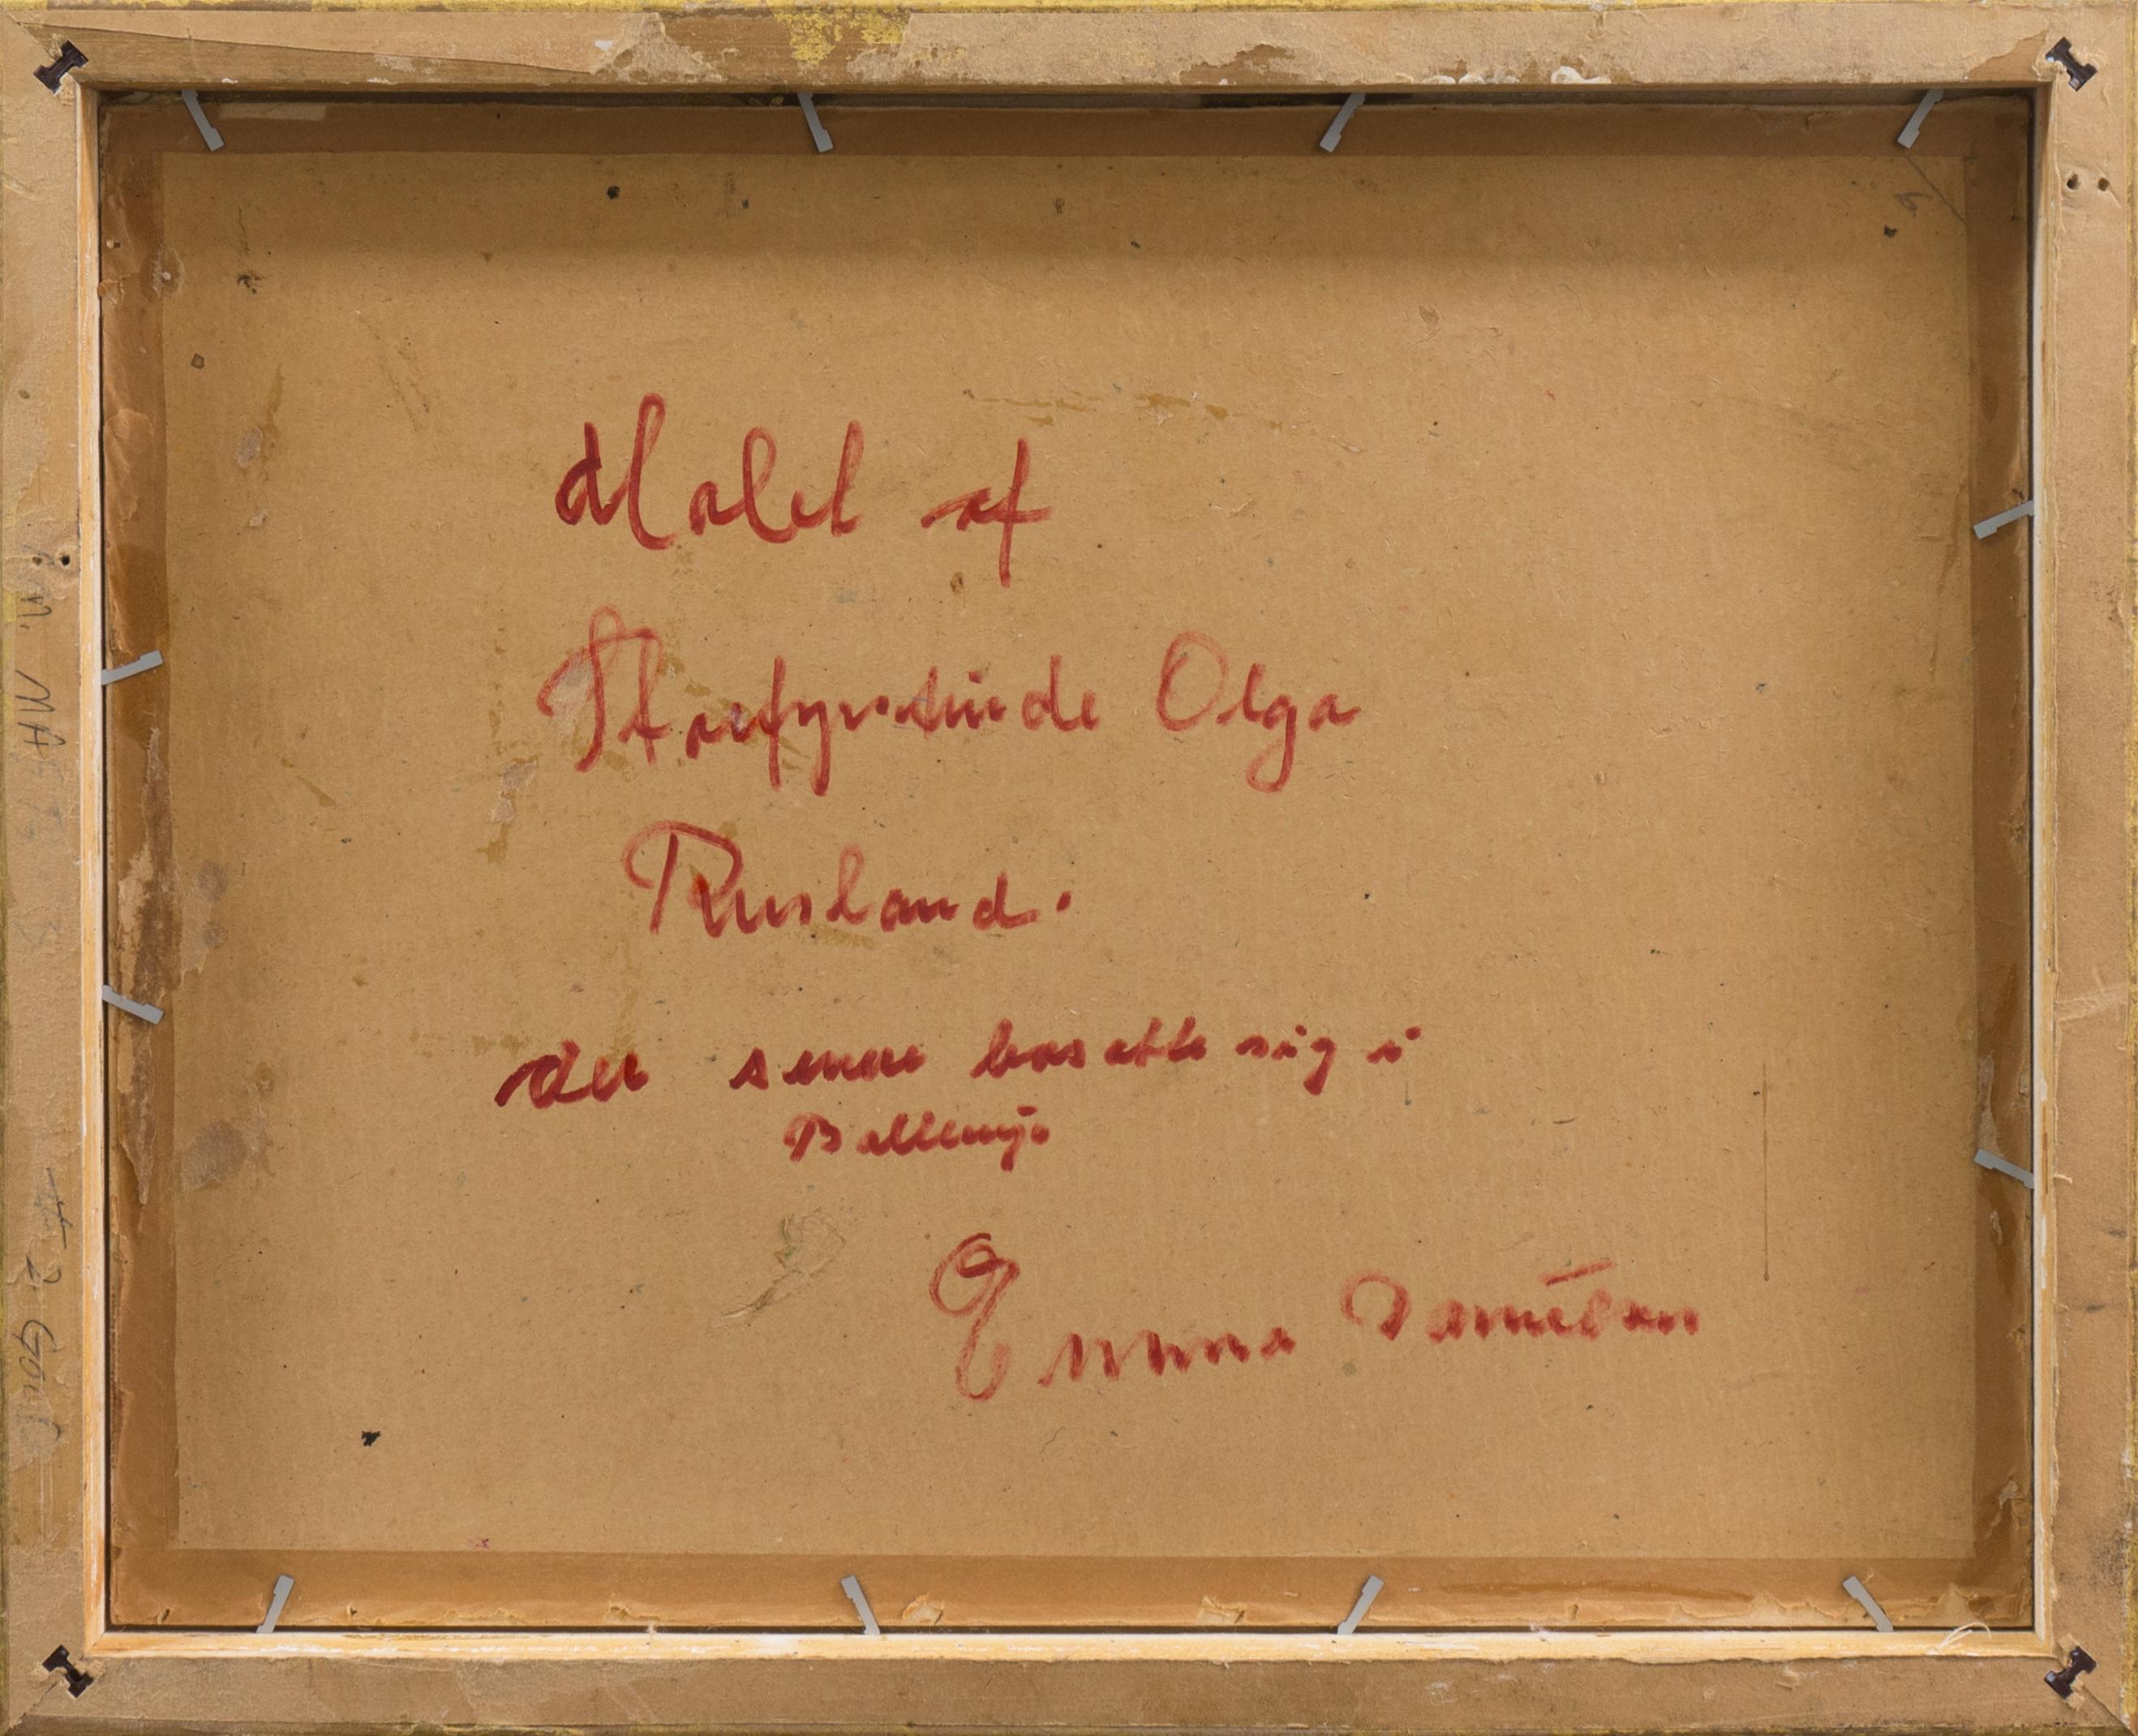 Malet af
Storfyrstinde Olga
Rusland.
der senere bosatte sig i
Ballerup
Emma Daniélsen